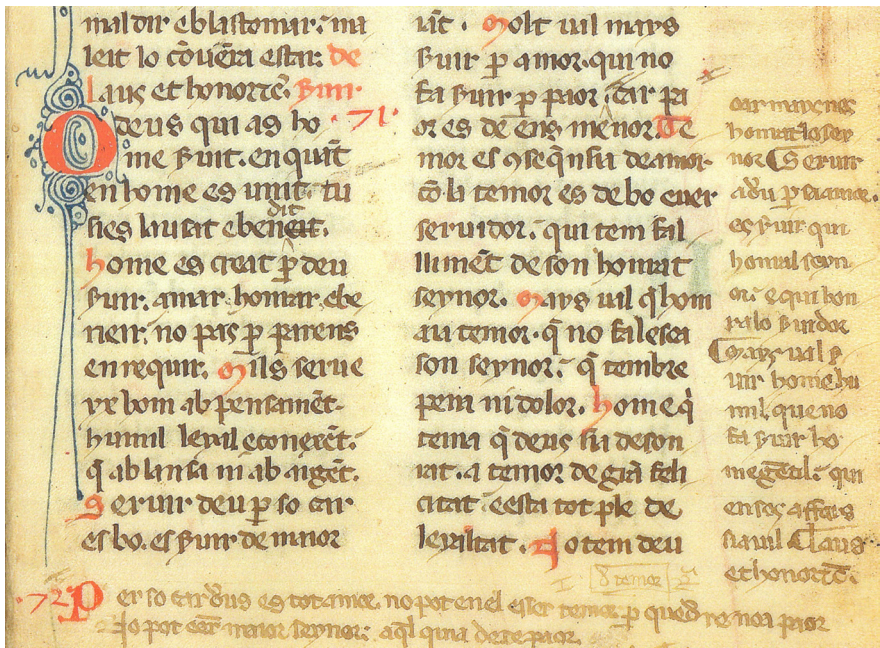 maldir e blastomar; ma
leit lo cōuēra estar: de
laus et honor tē. Seruir.
O deus qui as ho · 71 ·
me seruit. en quāt
en home es unit. tu
sies lausat e beneit. dit
home es creat ꝑ deu
seruir. amar. honrar. e be
neir; no pas ꝑ parens
enrequir. Mils serue
hom ab pensamēt.
humil leyal e conexēt;
q̄ ab lansa ni ab argēt.
Seruir deu ꝑ so car
es bo. es seruir de maior
uāt. Molt ual mays
seruir ꝑ amor. qui no
fa seruir ꝑ paor. Car pa
or es de ēns menor. Te
mor es ꝯseq̄nsia de amor.
cō la temor es de bo
seruidor. qui tem fal
limēt de son honrat
seynor. Mays ual q̄ hom
au temor. q̄ no
son seynor. q̄ tembre
pena ni dolor. Home q̄
tema q̄ deus sia de son
uat. a temor de grā feli
citat. e esta tot ple de
leyaltat. No tem deu
car mays es
honrat lo sey
nor Seruir
a deu ꝑ sa amor.
es seruir qui
honra lseyn
or. e qui hon
ra lo seruidor
Mays ual ser
uir home hu
mil, que no
fa seruir ho
me gētil. qui
en sos affers
sia uil Laus
et honor tē.
temor
· 72 · Per so car deus es tot amor. no pot en el esser temor ꝑ que no a paor
No pot esser maior seynor; aql qui a de re paor.